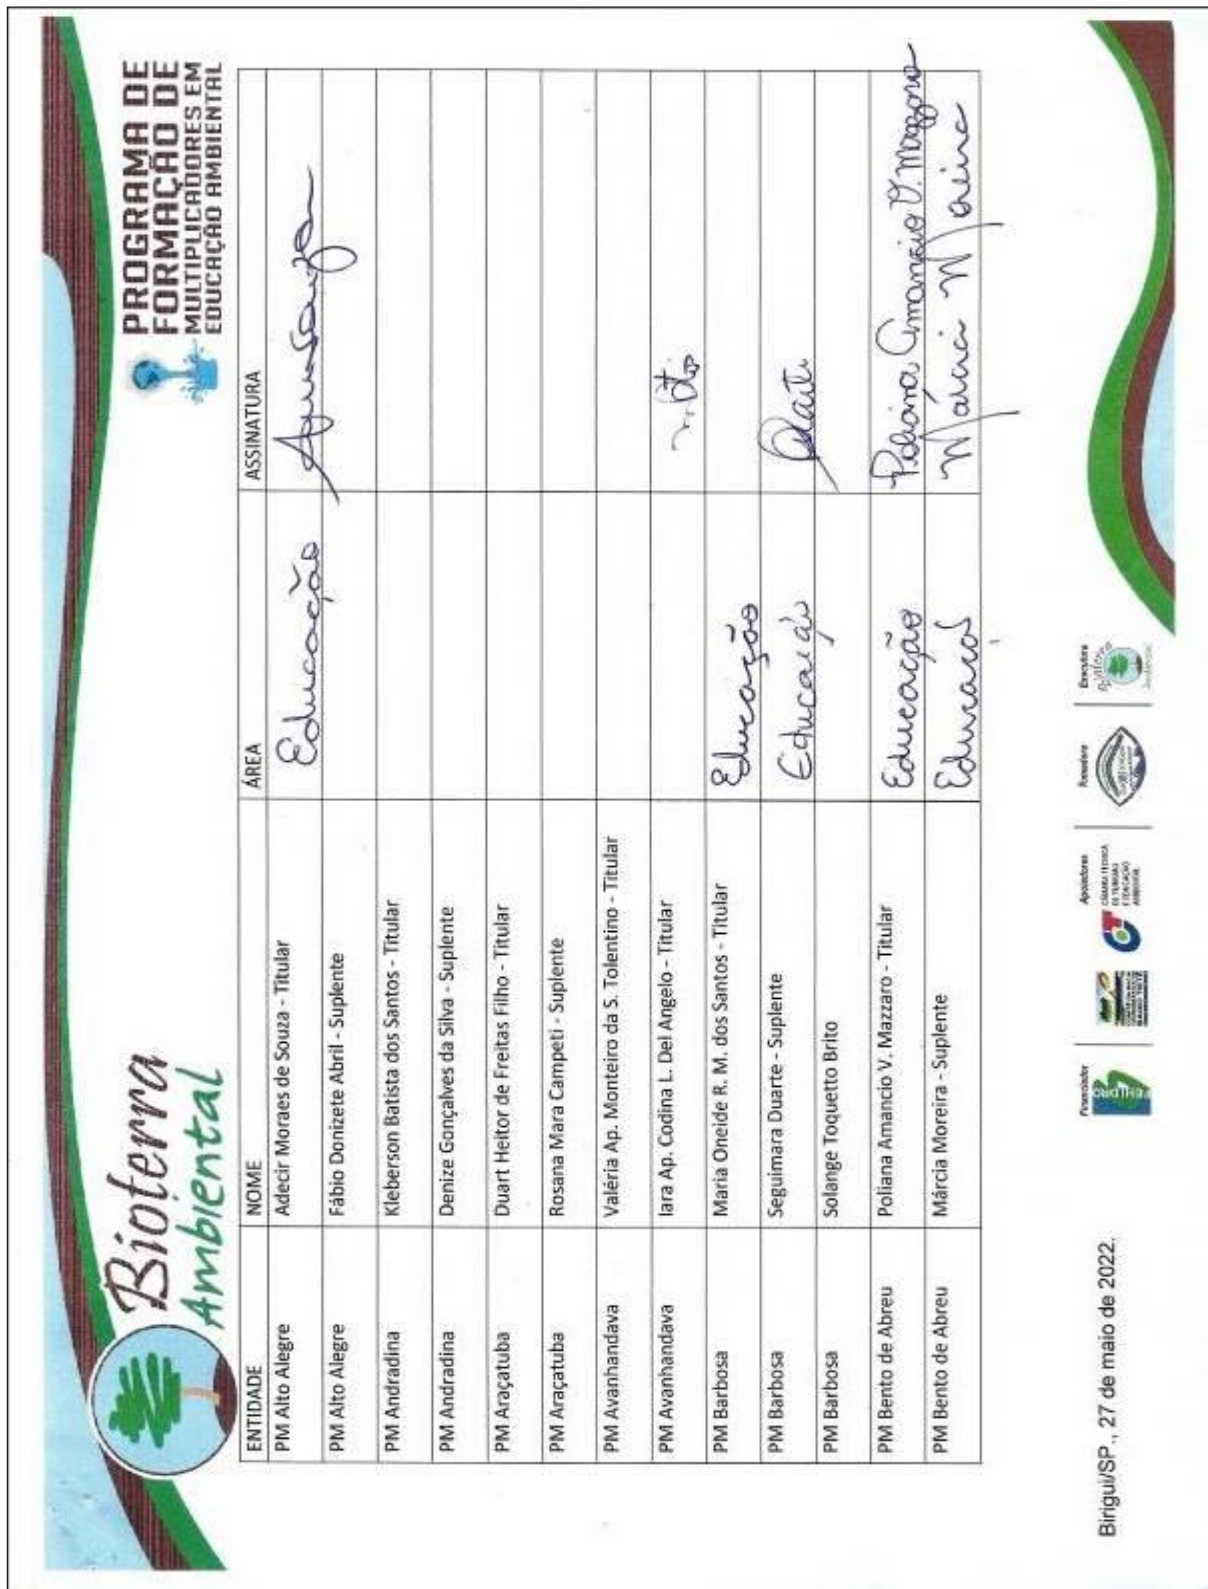 Bioterra
Ambiental
PROGRAMA DE
FORMAÇÃO DE
MULTIPLICADORES EM
EDUCAÇÃO AMBIENTAL
ENTIDADE NOME ÁREA ASSINATURA
PM Alto Alegre Adecir Moraes de Souza - Titular Educação
PM Alto Alegre Fábio Donizete Abril - Suplente
PM Andradina Kleberson Batista dos Santos - Titular
PM Andradina Denize Gonçalves da Silva - Suplente
PM Araçatuba Duart Heitor de Freitas Filho - Titular
PM Araçatuba Rosana Mara Campeti - Suplente
PM Avanhandava Valéria Ap. Monteiro da S. Tolentino - Titular
PM Avanhandava Iara Ap. Codina L. Del Angelo - Titular
PM Barbosa Maria Oneide R. M. dos Santos - Titular Educação
PM Barbosa Seguimara Duarte - Suplente Educação
PM Barbosa Solange Toquetto Brito
PM Bento de Abreu Poliana Amancio V. Mazzaro - Titular Educação Poliana Amancio V. Mazzaro
PM Bento de Abreu Márcia Moreira - Suplente Educação Marcia Moreira
Birigui/SP., 27 de maio de 2022.
Financiador
FEHIDRO
Apoiadores
CÂMARA TÉCNICA
DE TURISMO
E EDUCAÇÃO
AMBIENTAL
Executora